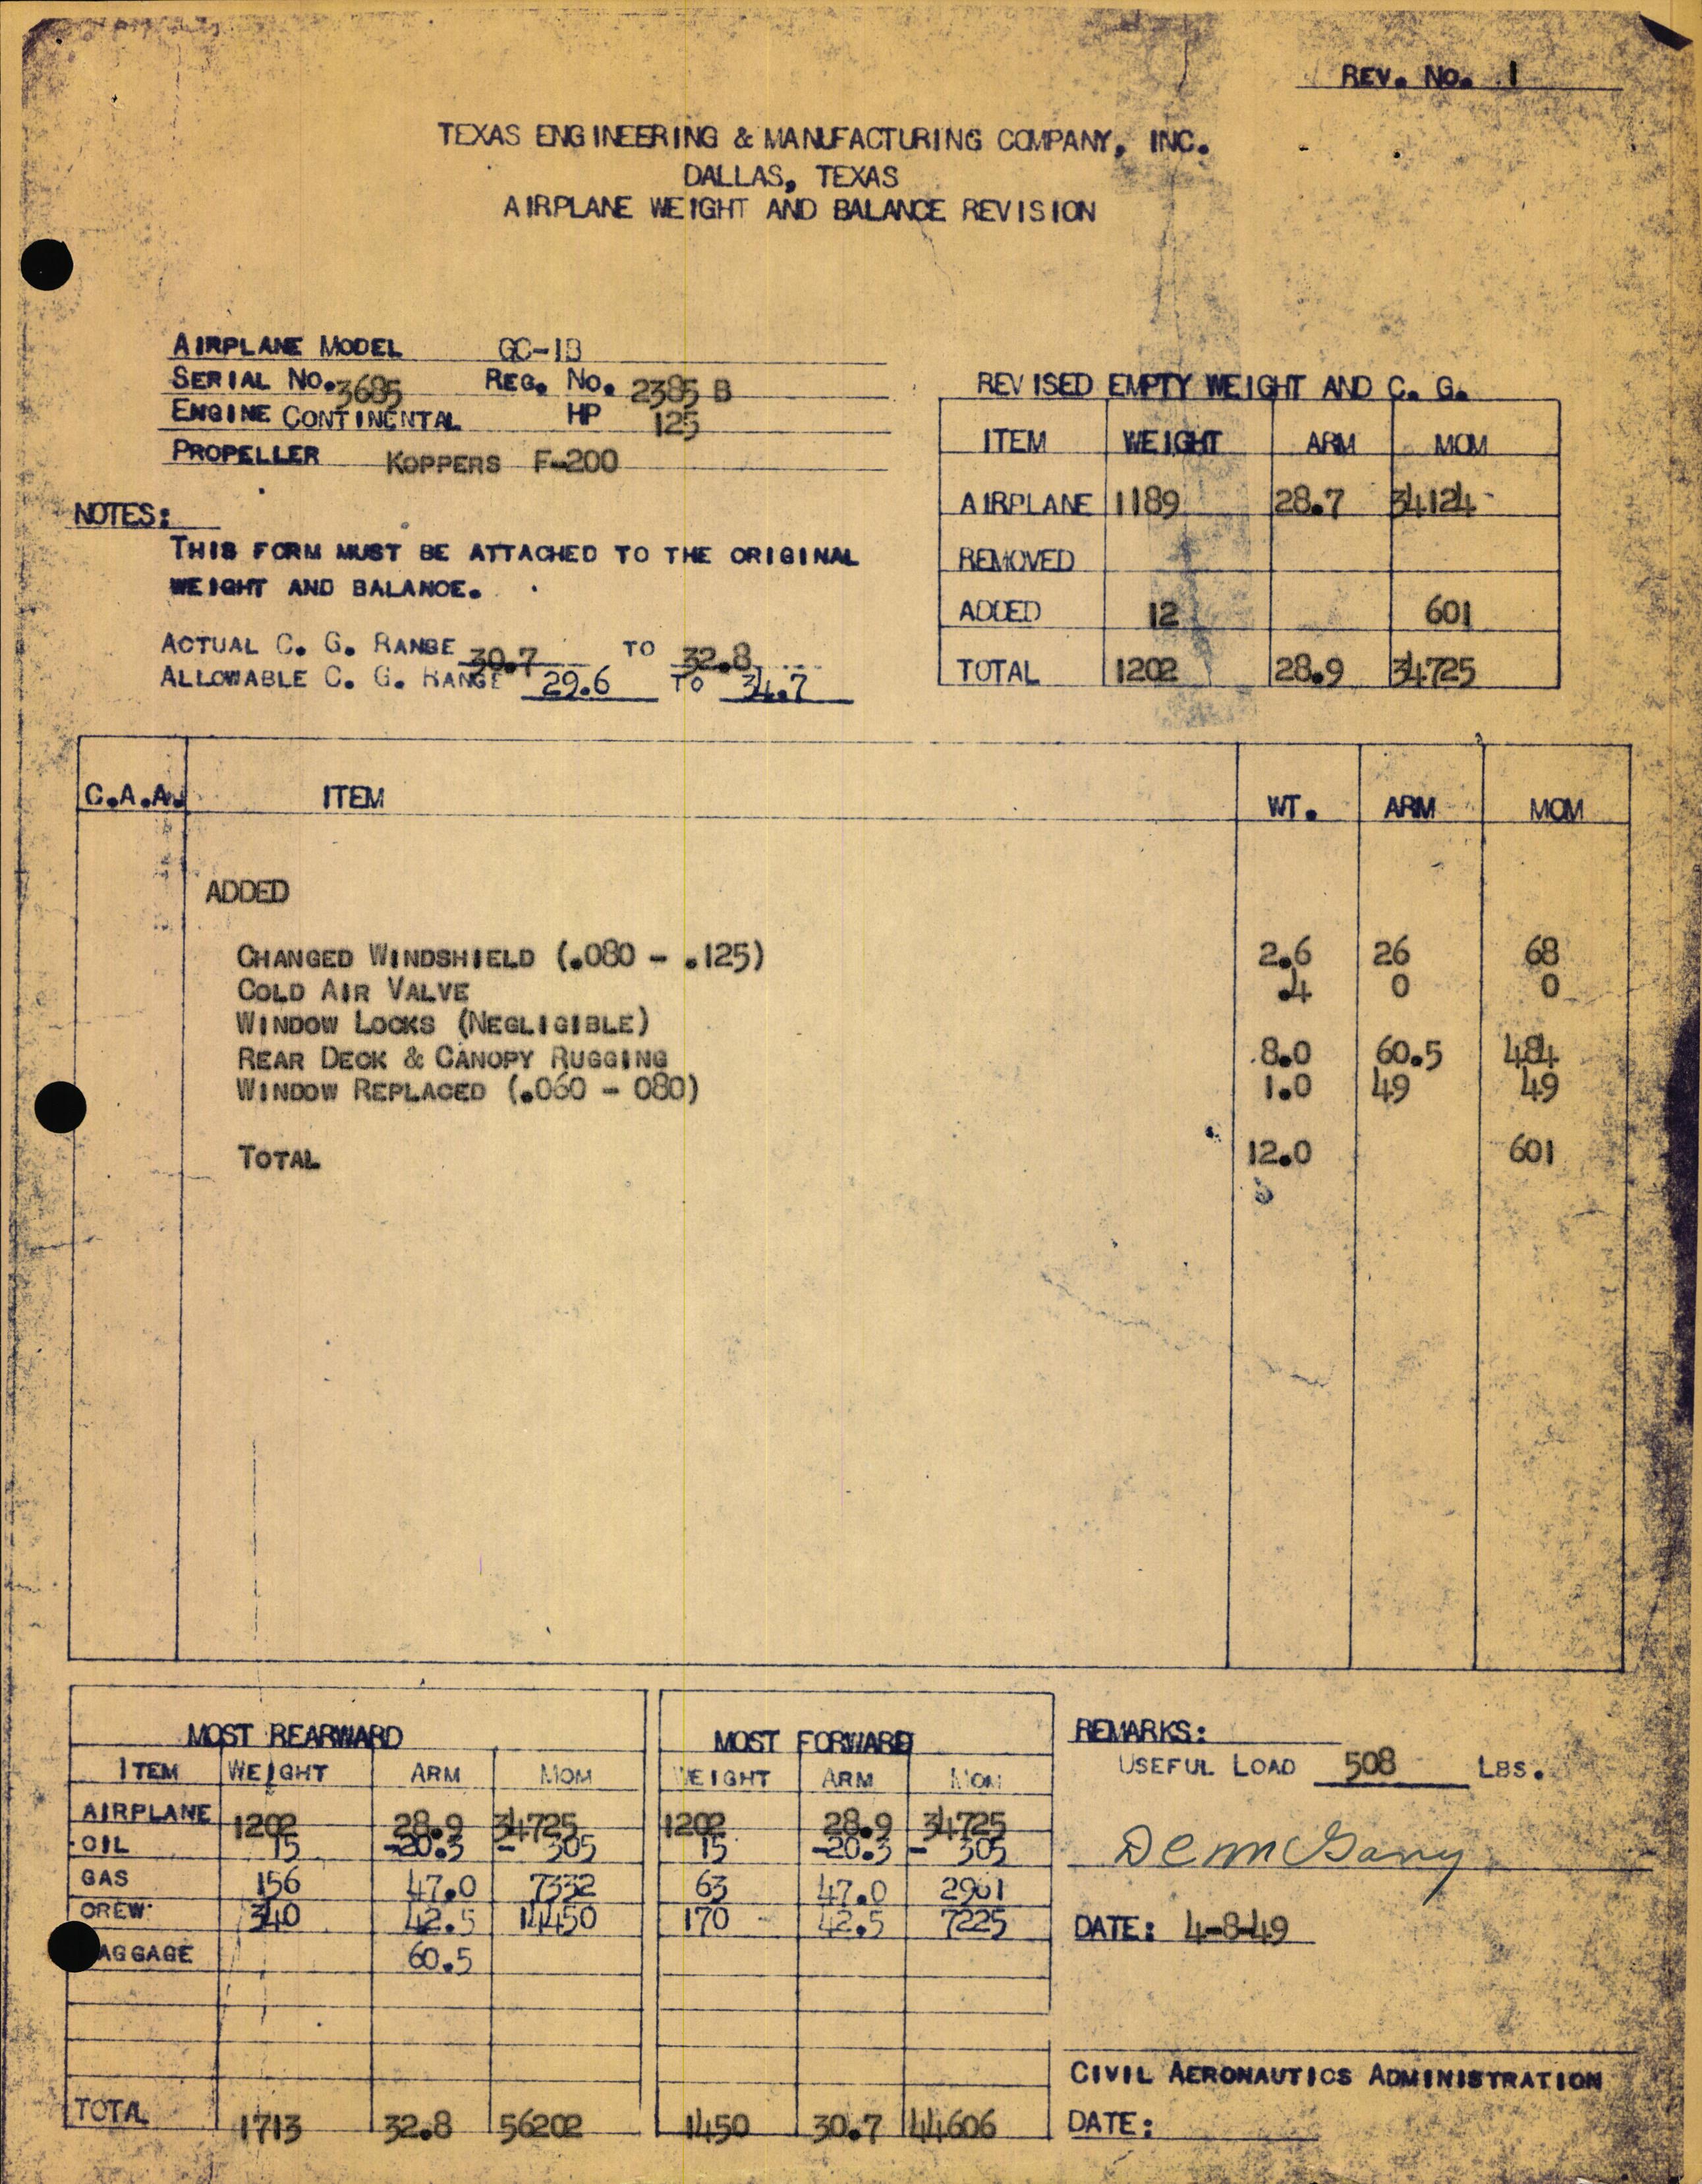 REV. NO. 1
TEXAS ENGINEERING & MANUFACTURING COMPANY, INC.
DALLAS, TEXAS
AIRPLANE WEIGHT AND BALANCE REVISION
AIRPLANE MODEL GC-1B
SERIAL NO. 3685 REG. NO. 2385 B
ENGINE CONTINENTAL HP 125
PROPELLER KOPPERS F-200
NOTES:
THIS FORM MUST BE ATTACHED TO THE ORIGINAL
WEIGHT AND BALANCE.
ACTUAL C. G. RANGE 30.7 TO 32.8
ALLOWABLE C. G. RANGE 29.6 TO 34.7
REVISED EMPTY WEIGHT AND C. G.
ITEM WEIGHT ARM MOM
AIRPLANE 1189 28.7 34124
REMOVED
ADDED 12 601
TOTAL 1202 28.9 34725
C.A.A. ITEM WT. ARM MOM
ADDED
CHANGED WINDSHIELD (.080 - .125) 2.6 26 68
COLD AIR VALVE .4 0 0
WINDOW LOCKS (NEGLIGIBLE)
REAR DECK & CANOPY RUGGING 8.0 60.5 484
WINDOW REPLACED (.060 - 080) 1.0 49 49
TOTAL 12.0 601
MOST REARWARD
ITEM WEIGHT ARM MOM
AIRPLANE 1202 28.9 34725
OIL 15 -20.3 - 305
GAS 156 47.0 7332
CREW 340 42.5 14450
AGGAGE 60.5
TOTAL 1713 32.8 56202
MOST FORWARD
WEIGHT ARM MOM
1202 28.9 34725
15 -20.3 - 305
63 47.0 2961
170 42.5 7225
1450 30.7 44606
REMARKS:
USEFUL LOAD 508 LBS.
DATE: 4-8-49
CIVIL AERONAUTICS ADMINISTRATION
DATE: